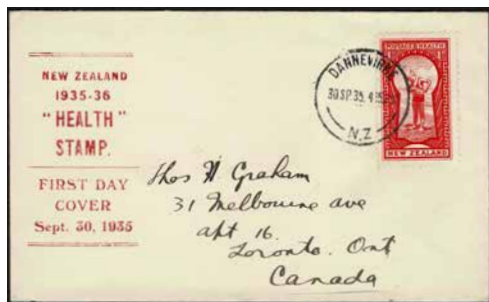 NEW ZEALAND
1935-36
"HEALTH"
STAMP.
FIRST DAY
COVER
Sept. 30, 1935
DANNEVIRKE
30 SP. 35. 4
N.Z
POSTAGE HEALTH
NEW ZEALAND
Thos H Graham
31 Melbourne ave
apt 16.
Toronto. Ont
Canada